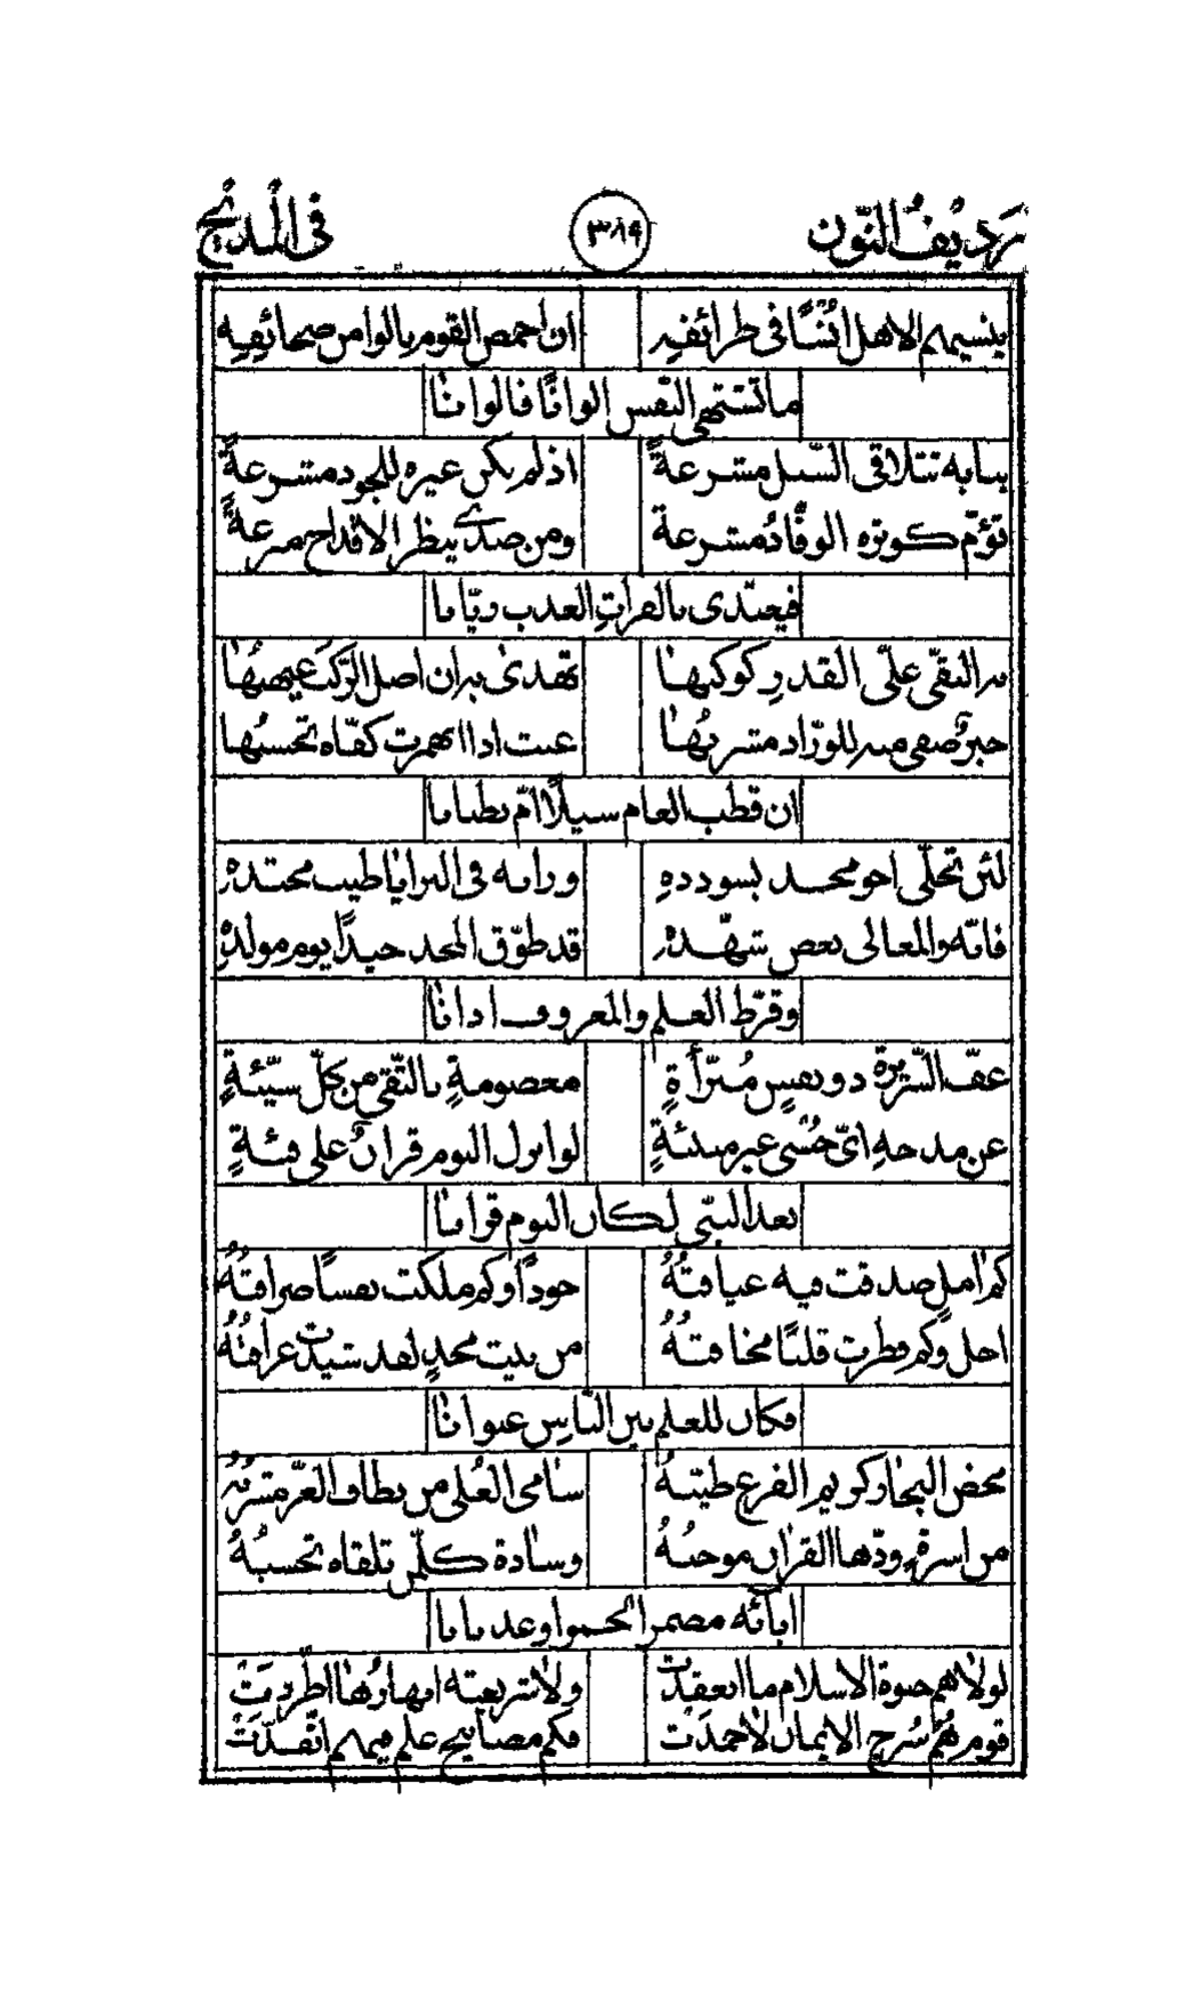 رديف النون ٣٨٩ في المديح
ينسيهم الاهل انسًا في طرائفه ان احمص القوم بالوا من صحائفه
ما تشتهي النفس الوانًا فالوانا
ببابه تتلاقى السبل مشرعةً اذ لم يكن غيره للجود مشرعةً
تؤمّ كوثره الورّاد مشرعة ومن صدى ينظر الاقداح مترعةً
فيجتدى بالفرات العذب ريّانا
بدر التقى علىّ القدر كوكبها تهدى به ان اضل الركب غيهبها
حبر صفى منه للورّاد مشربها غيث اذا انهمرت كفّاه تحسبها
ان قطب العام سيلًا امّ بطنانا
لئن تحلّى اخو مجد بسودده ورانه فى البرايا طيب محتده
فانّه والمعالى بعض شهّده قد طوّق المجد جيدًا يوم مولده
وقرّط العلم والمعروف اذانا
عفّ السريرة ذو نفسٍ مبرّأةٍ معصومةٍ بالتقى من كلّ سيّئةٍ
عن مدحه اىّ خُشى غير منبئةٍ لو انزل اليوم قرانٌ على فئةٍ
بعد النبى لكان اليوم قرانا
كم املٍ صدقت فيه عيافتُهُ جودًا وكم ملكت نفسًا صرافتُهُ
اجل وكم فطرت قلبًا مخافتُهُ من بيت مجدٍ لقد شيدت غرافتُهُ
فكان للعلم بين الناس عنوانا
محض النجار كريم الفرع طيّبهُ سامى العُلى من نطاف العزّ مشربه
من اسرةٍ ودّها القران موجبهُ وسادة كلّ من تلقاه تحسبهُ
ابائه مضمر الحسوا وعدنانا
لولاهم صوة الاسلام ما انعقدت ولا شريعته انهارُها اطّردت
قوم هُم سُرج الايمان لا خمدت فكم مصابيح علم فيهم اتّقدت